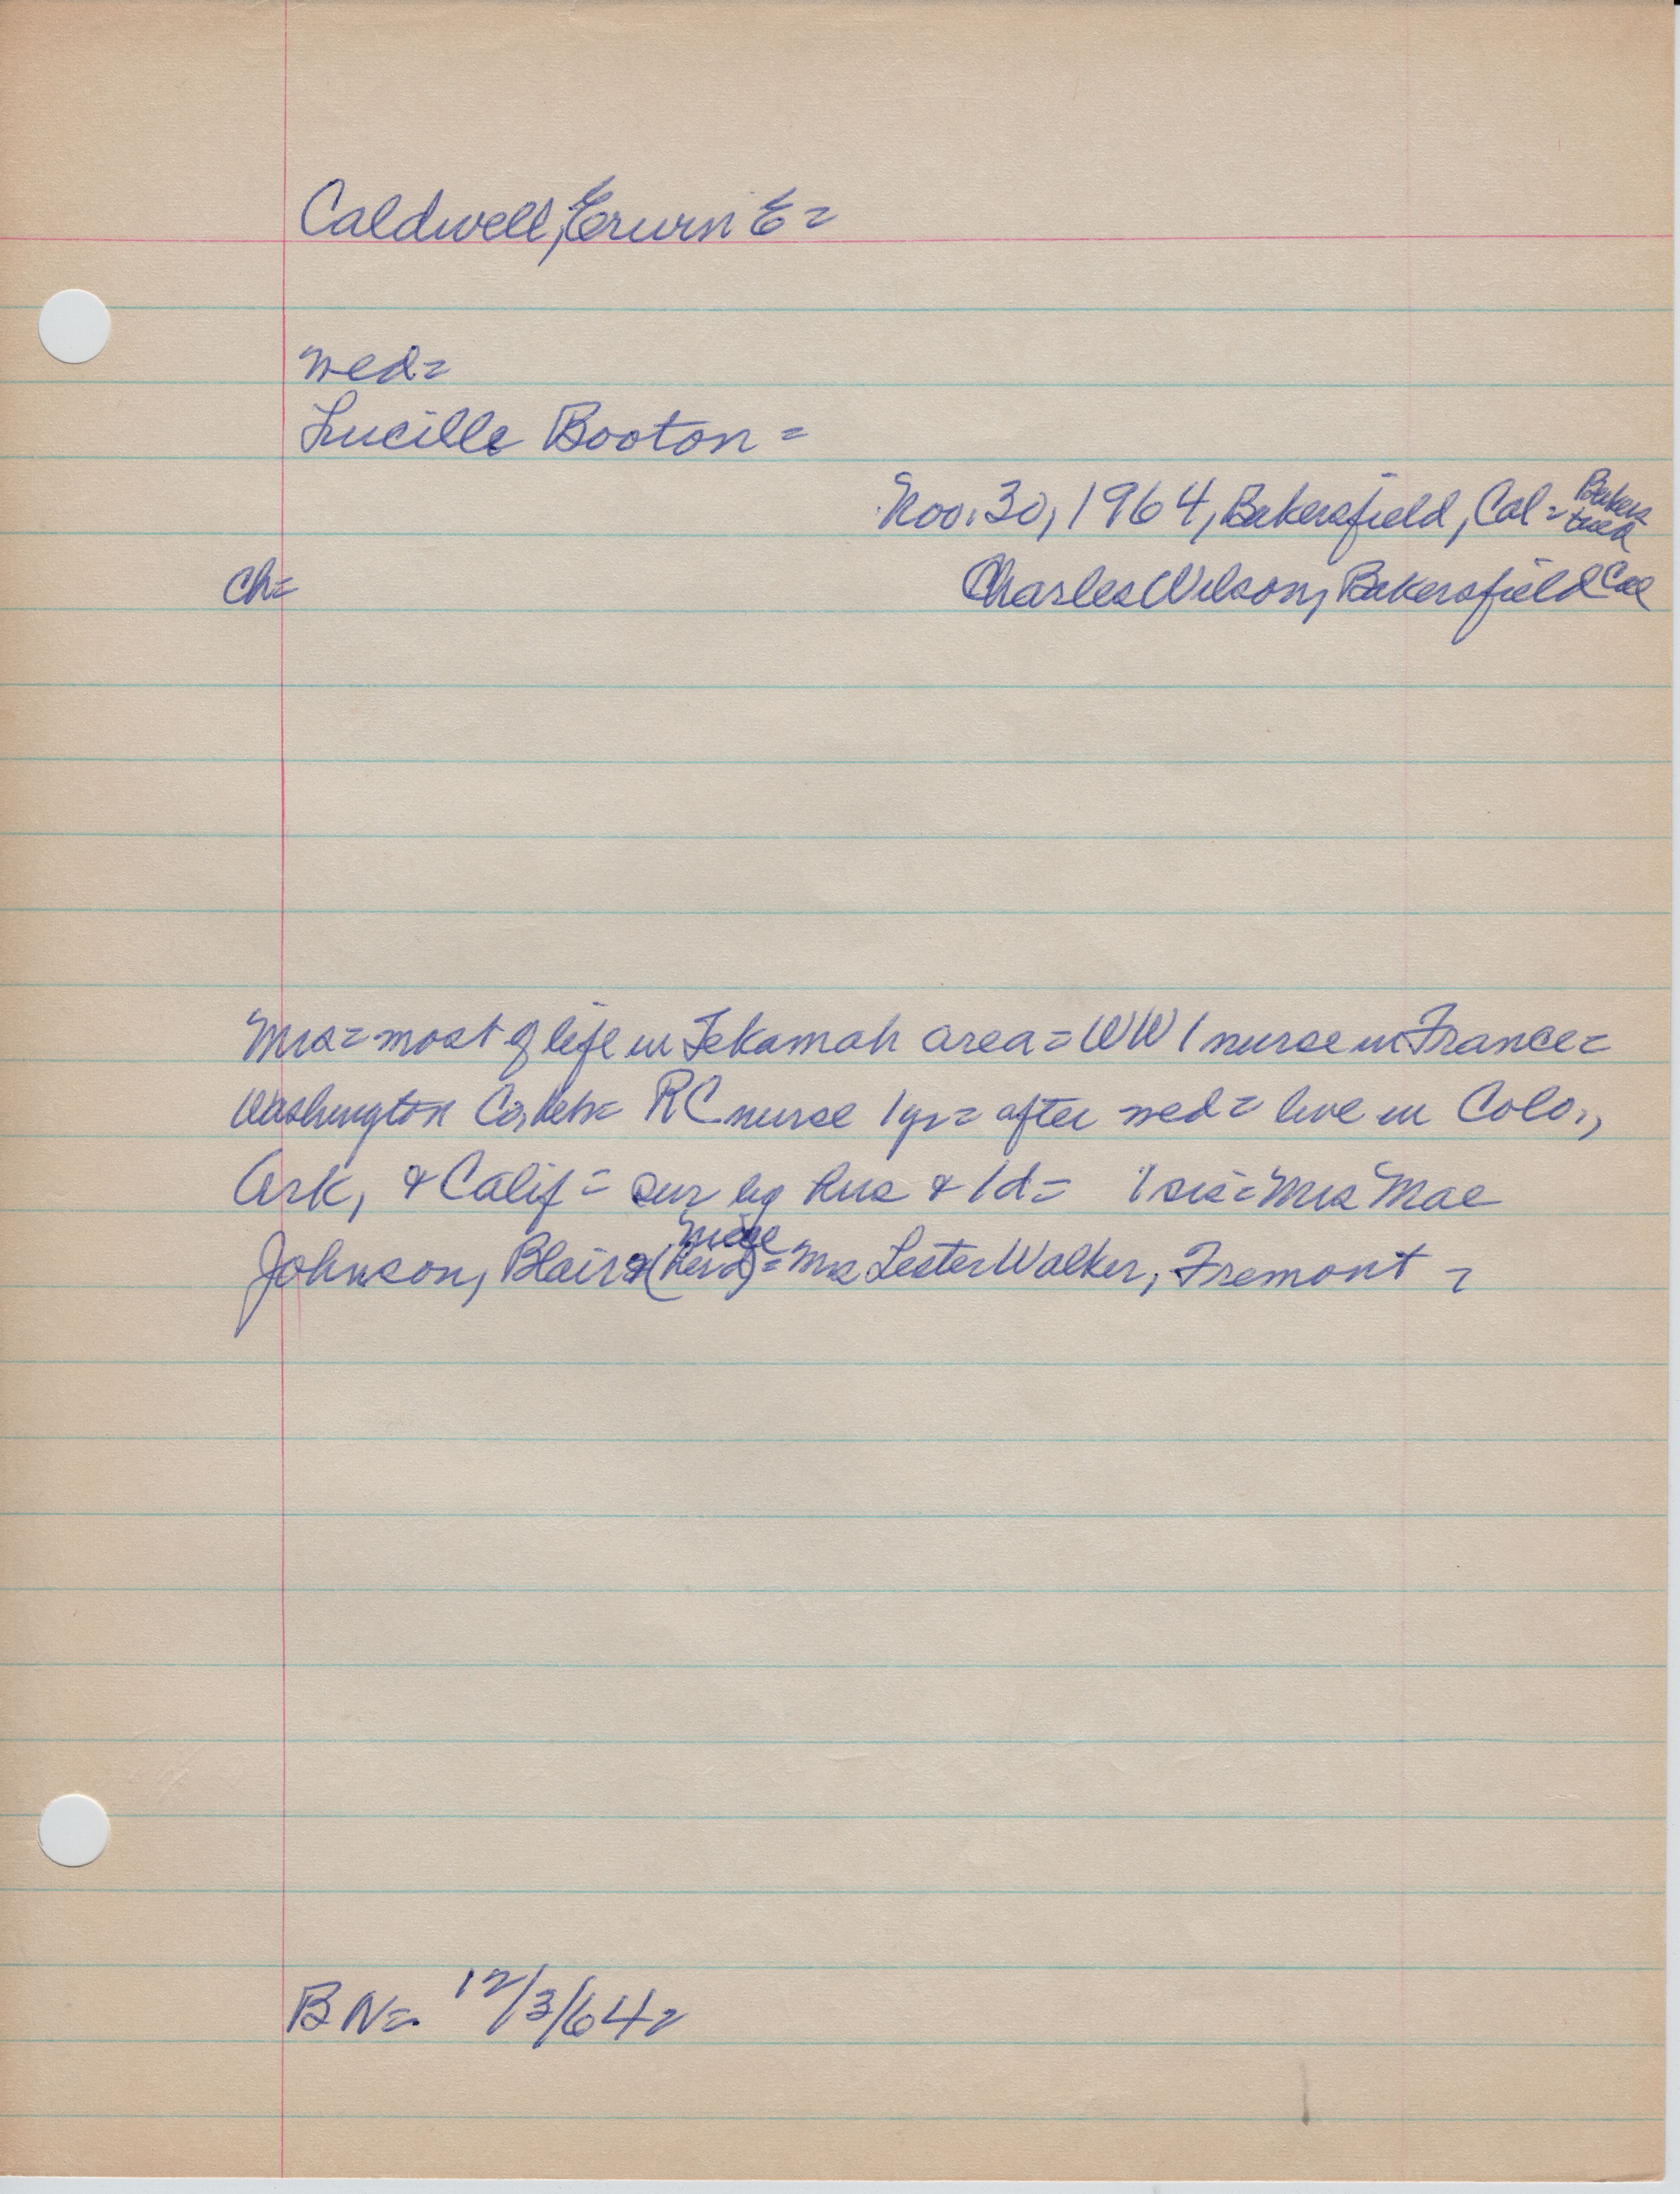 Caldwell, Erwin E =
wed =
Lucille Booton =
Nov. 30, 1964, Bakersfield, Cal =
ch= Charles Wilson, Bakersfield Cal
Mrs = most of life in Tekamah area = WW 1 nurse in France =
Washington Co, Neb = RC nurse 1 yr = after wed = live in Colo.,
Ark, & Calif = sur by hus & 1 d = 1 sis = Mrs Mae
niece
Johnson, Blair & = Mrs Lester Walker, Fremont =
BN = 12/3/64 =